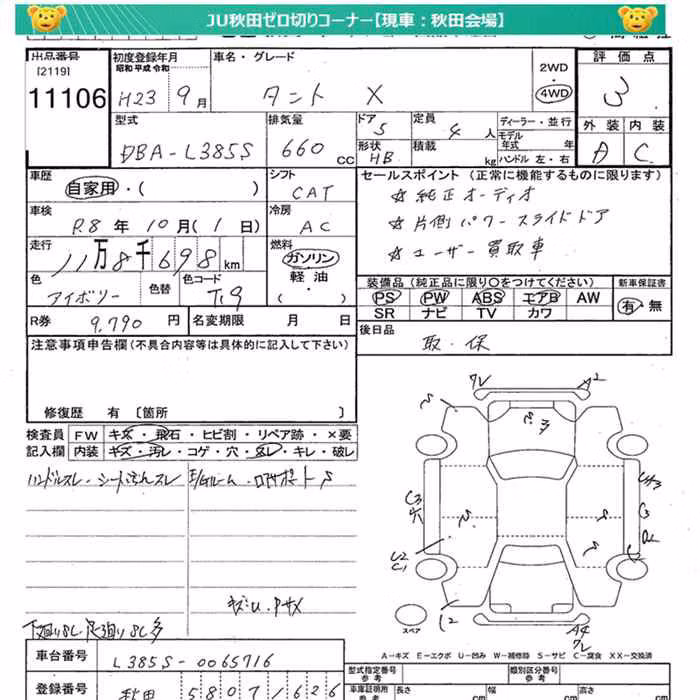 JU秋田ゼロ切りコーナー【現車：秋田会場】
出品番号
[2119]
11106
初度登録年月
昭和 平成 令和
H23 9月
車名・グレード
タント X
2WD
・
4WD
評価点
3
型式
DBA-L385S
排気量
660 cc
ドア
5
定員
4 人
形状
HB
積載
kg
ディーラー・並行
モデル年式 年
ハンドル 左・右
外装 内装
A C
車歴
自家用・( )
シフト
CAT
車検
R.8年10月(1日)
冷房
AC
走行
11万8千698km
燃料
ガソリン
軽油
( ・ )
色
アイボリー
色替
色コード
T19
R券 9,790 円
名変期限 月 日
セールスポイント (正常に機能するものに限ります)
☆純正オーディオ
☆片側パワースライドドア
☆ユーザー買取車
装備品(純正品に限り〇をつけてください)
新車保証書
PS PW ABS エアB AW
SR ナビ TV カワ
有・無
後日品
取・保
注意事項申告欄(不具合内容等は具体的に記入して下さい)
修復歴 有 [箇所 ]
検査員 FW キズ・飛石・ヒビ割・リペア跡・×要
記入欄 内装 キズ・汚レ・コゲ・穴・スレ・キレ・破レ
ハンドルスレ・シート汚れスレ
下廻りSC 足廻りSC多
クレ
A2
スペア
A4
クレ
A-キズ E-エクボ U-凹み W-補修跡 S-サビ C-腐食 XX-交換済
車台番号
L385S-0065716
登録番号
秋田 580 フ1626
型式指定番号
参考
類別区分番号
参考
車庫証明用
参考
長さ cm
幅 cm
高さ cm